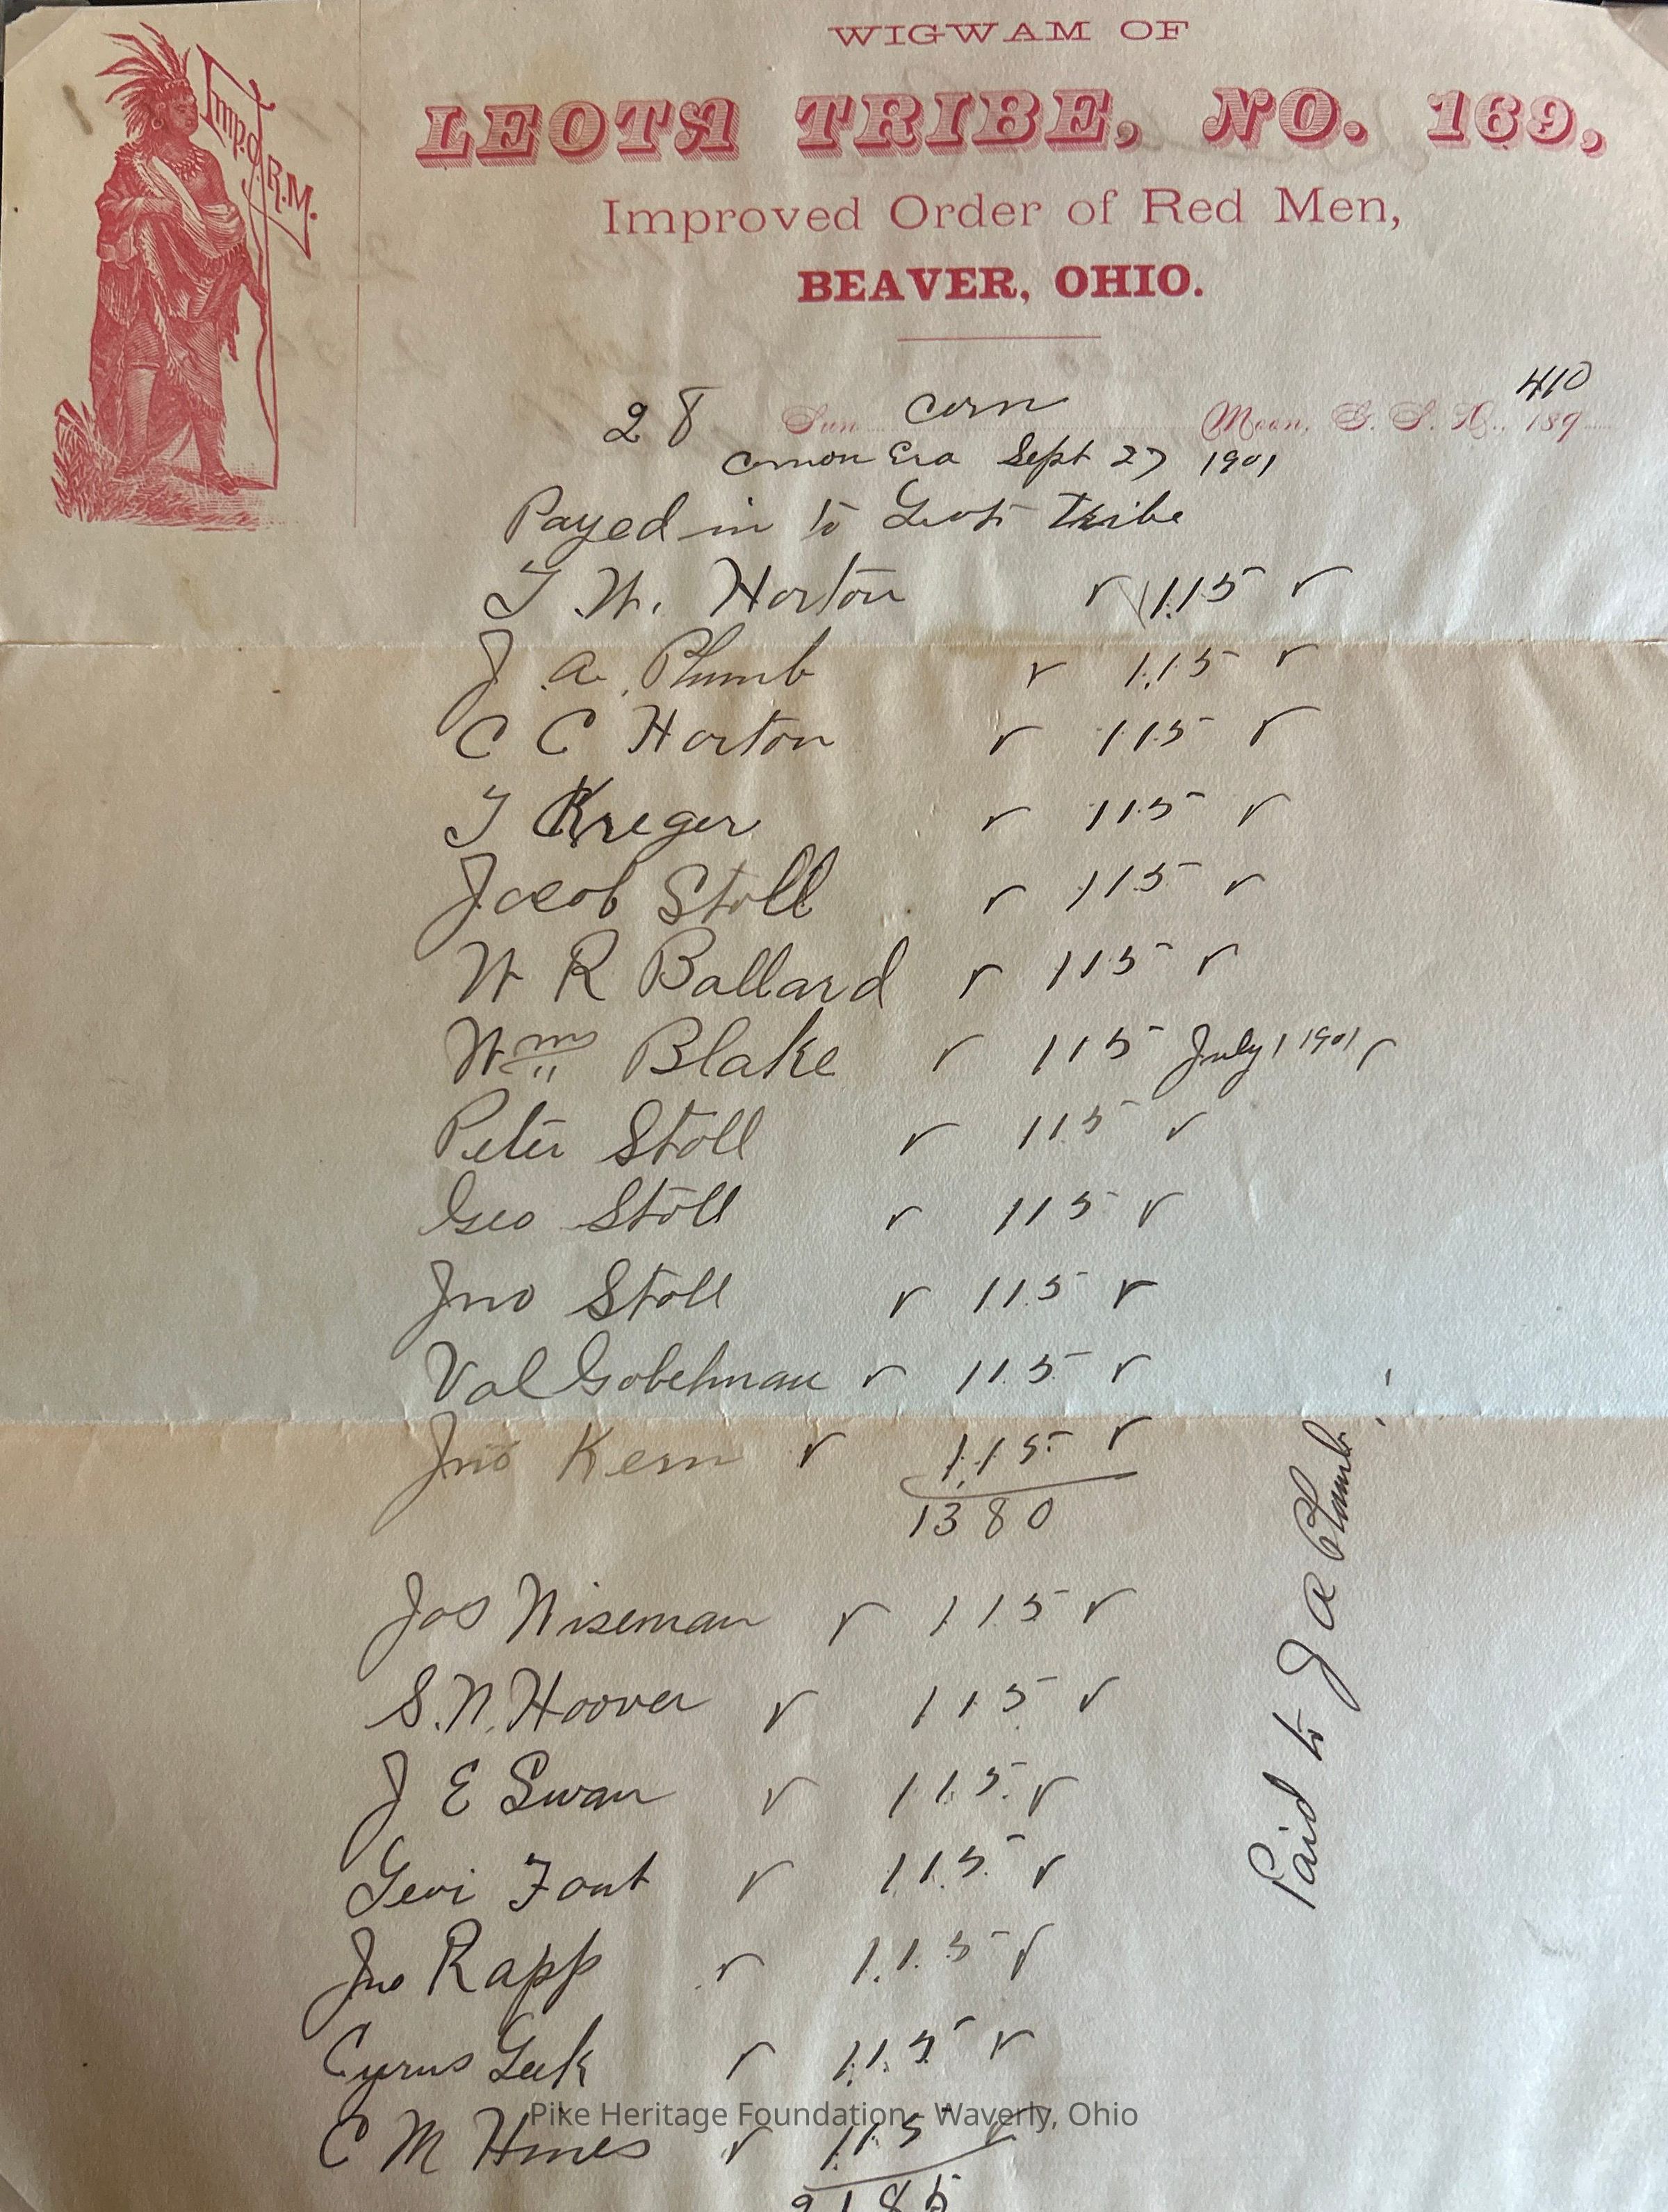 Imp. O. R.M.
WIGWAM OF
LEOTA TRIBE, NO. 169,
Improved Order of Red Men,
BEAVER, OHIO.
28 Sun corn Moon, G. S. D., 189 410
Comon Era Sept 27 1901
Payed in to Leota Tribe
T. W. Horton 1.15
J. A. Plumb 1.15
C C Horton 1.15
T Kreger 1.15
Jacob Stoll 1.15
W R Ballard 1.15
Wm Blake 1.15 July 1 1901
Peter Stoll 1.15
Geo Stoll 1.15
Jno Stoll 1.15
Val Gobelman 1.15
Jno Kern 1.15
1380
Jos Wiseman 1.15
S. N. Hoover 1.15
J E Swan 1.15
Levi Fout 1.15
Jno Rapp 1.15
Cyrus Leek 1.15
C M Hines 1.15
2185
Paid to J A Plumb
Pike Heritage Foundation - Waverly, Ohio